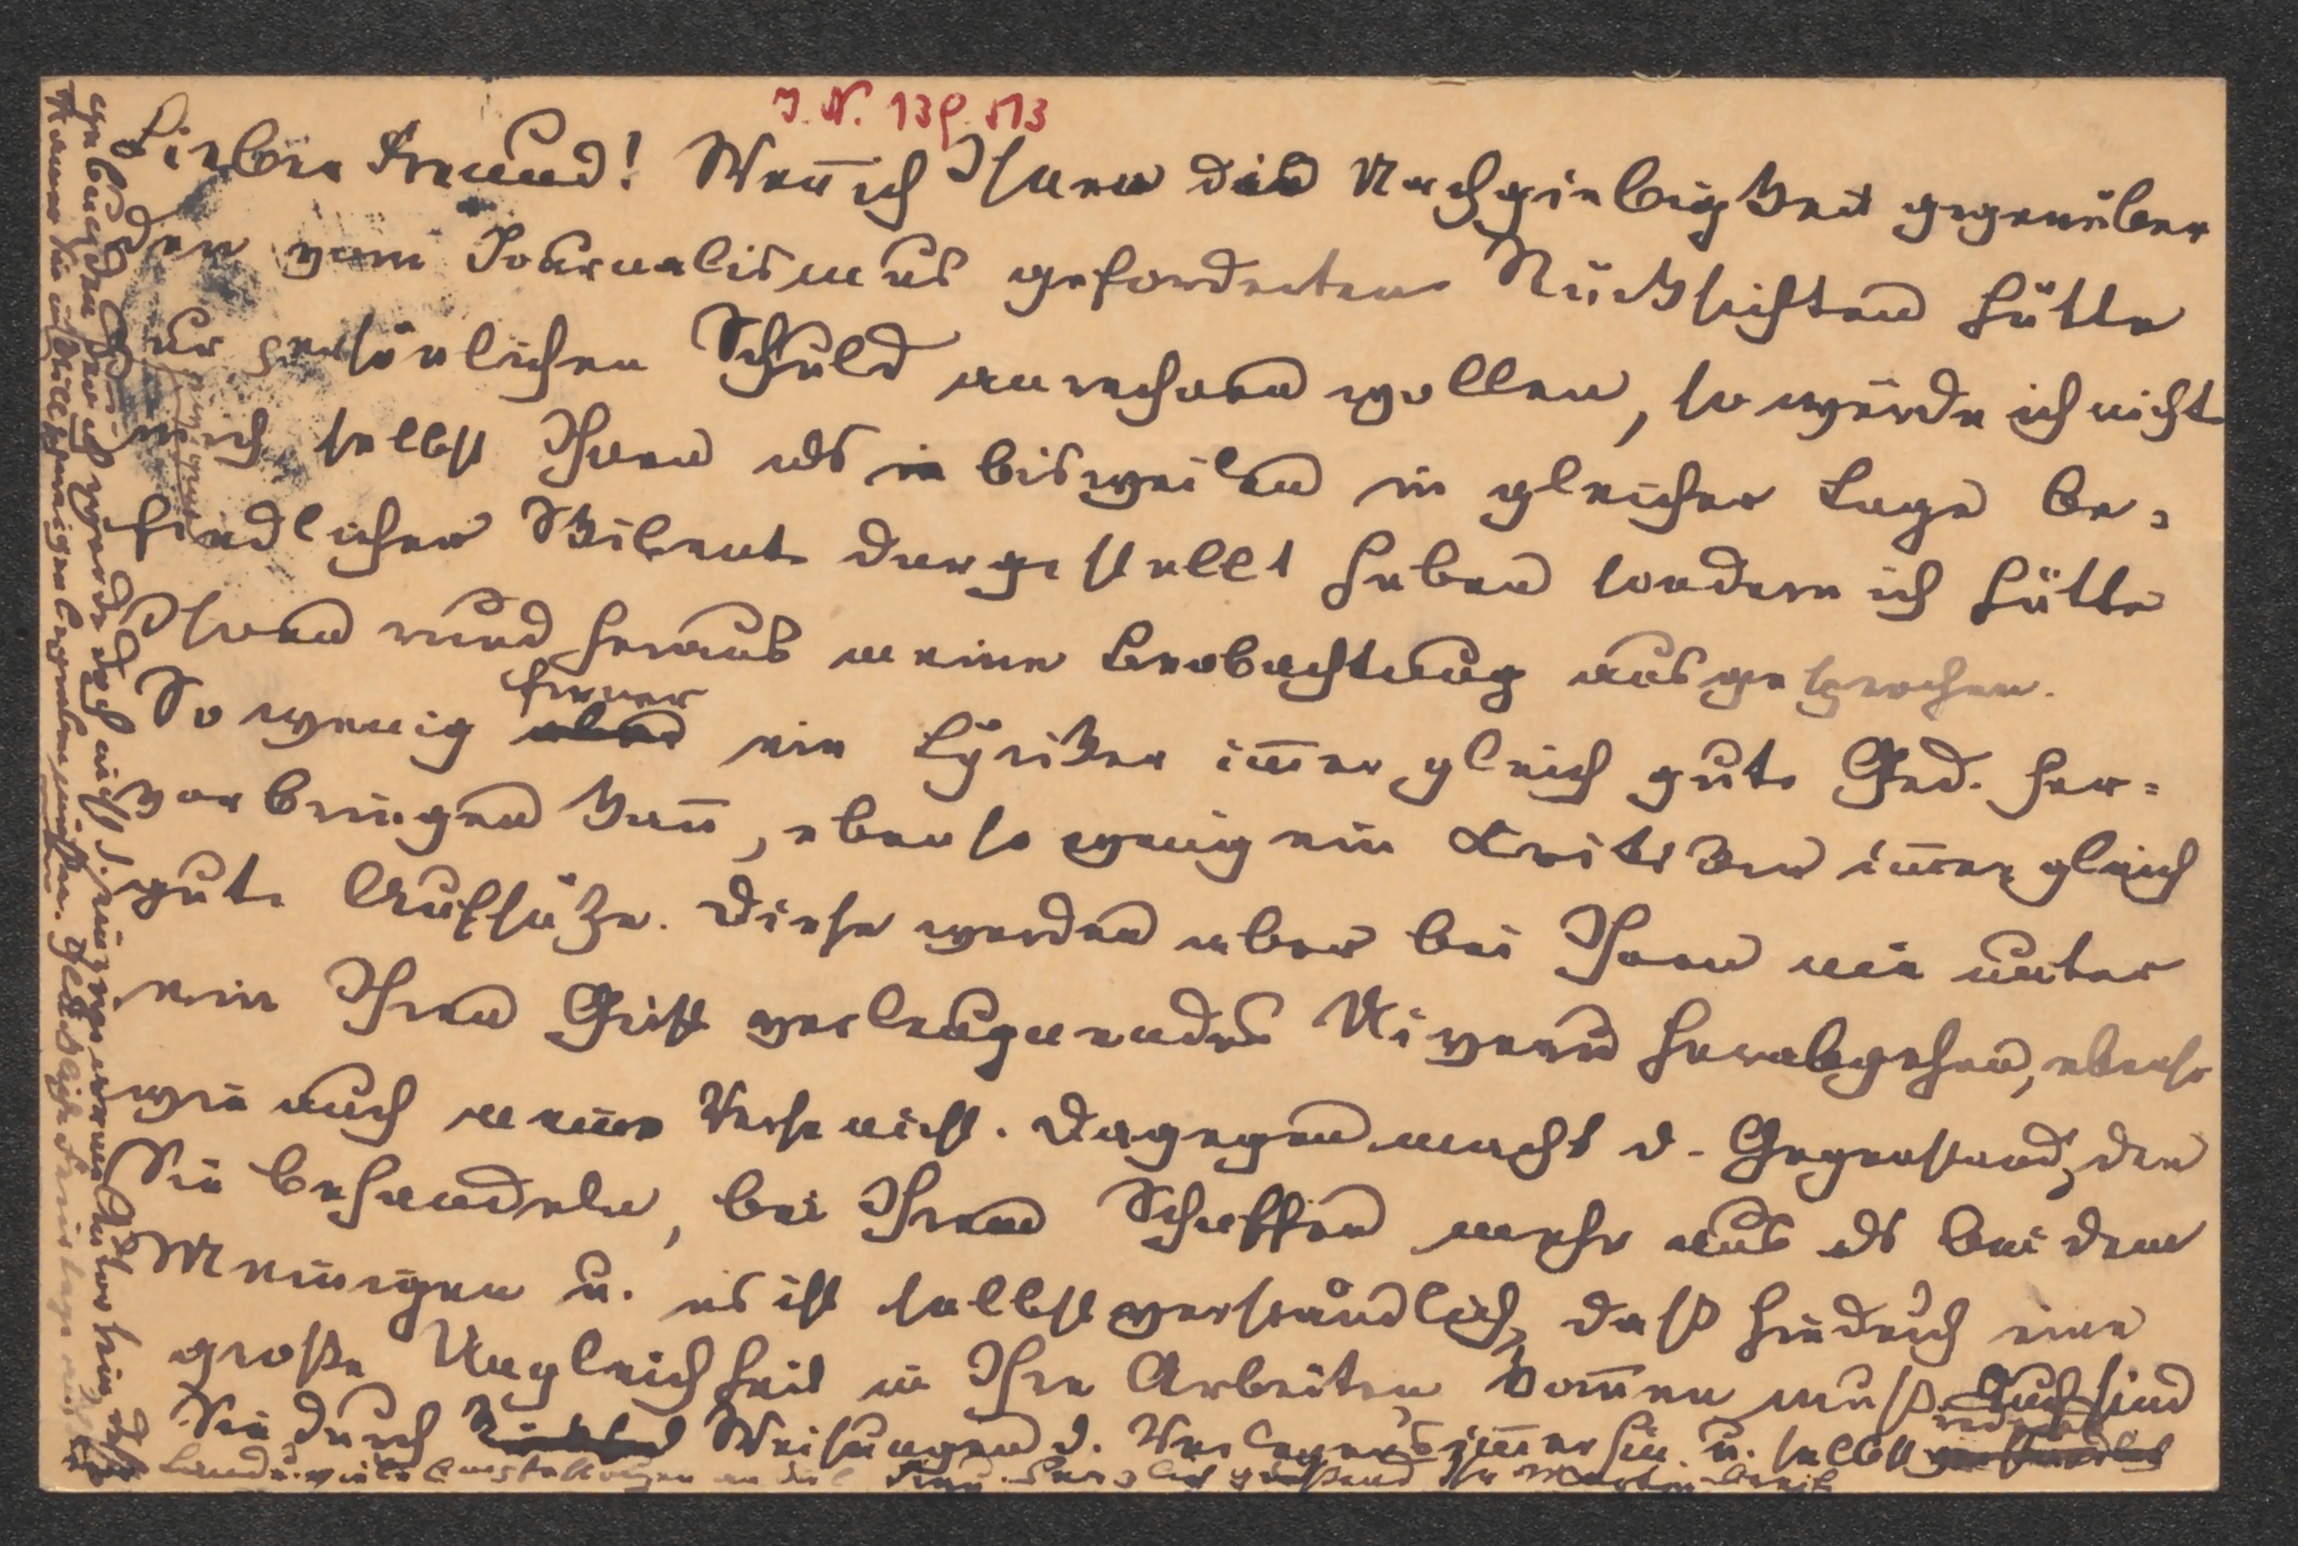 J. N. 139.513
Lieber Freund! Wen̄ ich Ihnen die Nachgiebigkeit gegenüber
den vom Journalismus geforderten Rücksichten hätte
zur persönlichen Schuld anrechnen wollen, so würde ich nicht
mich selbst Ihnen als in bisweilen in gleicher Lage be-
findlicher Skribent dargestellt haben sondern ich hätte
Ihnen rund heraus meine Beobachtung ausgesprochen.
So wenig ferner ein Lyriker im̄er gleich gute Ged. her-
vorbringen kan̄, ebenso wenig ein Kritiker im̄er gleich
gute Aufsätze. Diese werden aber bei Ihnen nie unter
ein Ihren Geist verleugnendes Niveau herabgehen, ebenso
wie auch meine Verse nicht. Dagegen macht d. Gegenstand, den
Sie behandeln, bei Ihrem Schaffen mehr aus als bei dem
Meinigen u. es ist selbstverständlich, daß hiedurch eine
große Ungleichheit in Ihre Arbeiten kom̄en muß. Auch sind
Sie durch Weisungen d. Verlegers im̄erhin u. selbst
gebunden. Ich werde doch nicht so ein Autor sein, daß